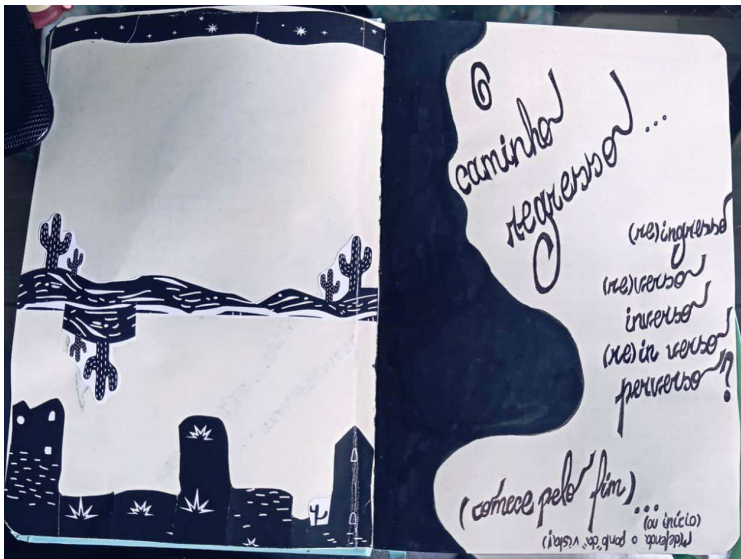 O
caminho
regresso...
(re)ingresso
(re)verso
inverso
(re)in verso
perverso?
(comece pelo fim)...
(ou início)
do "ponto da" vista!)